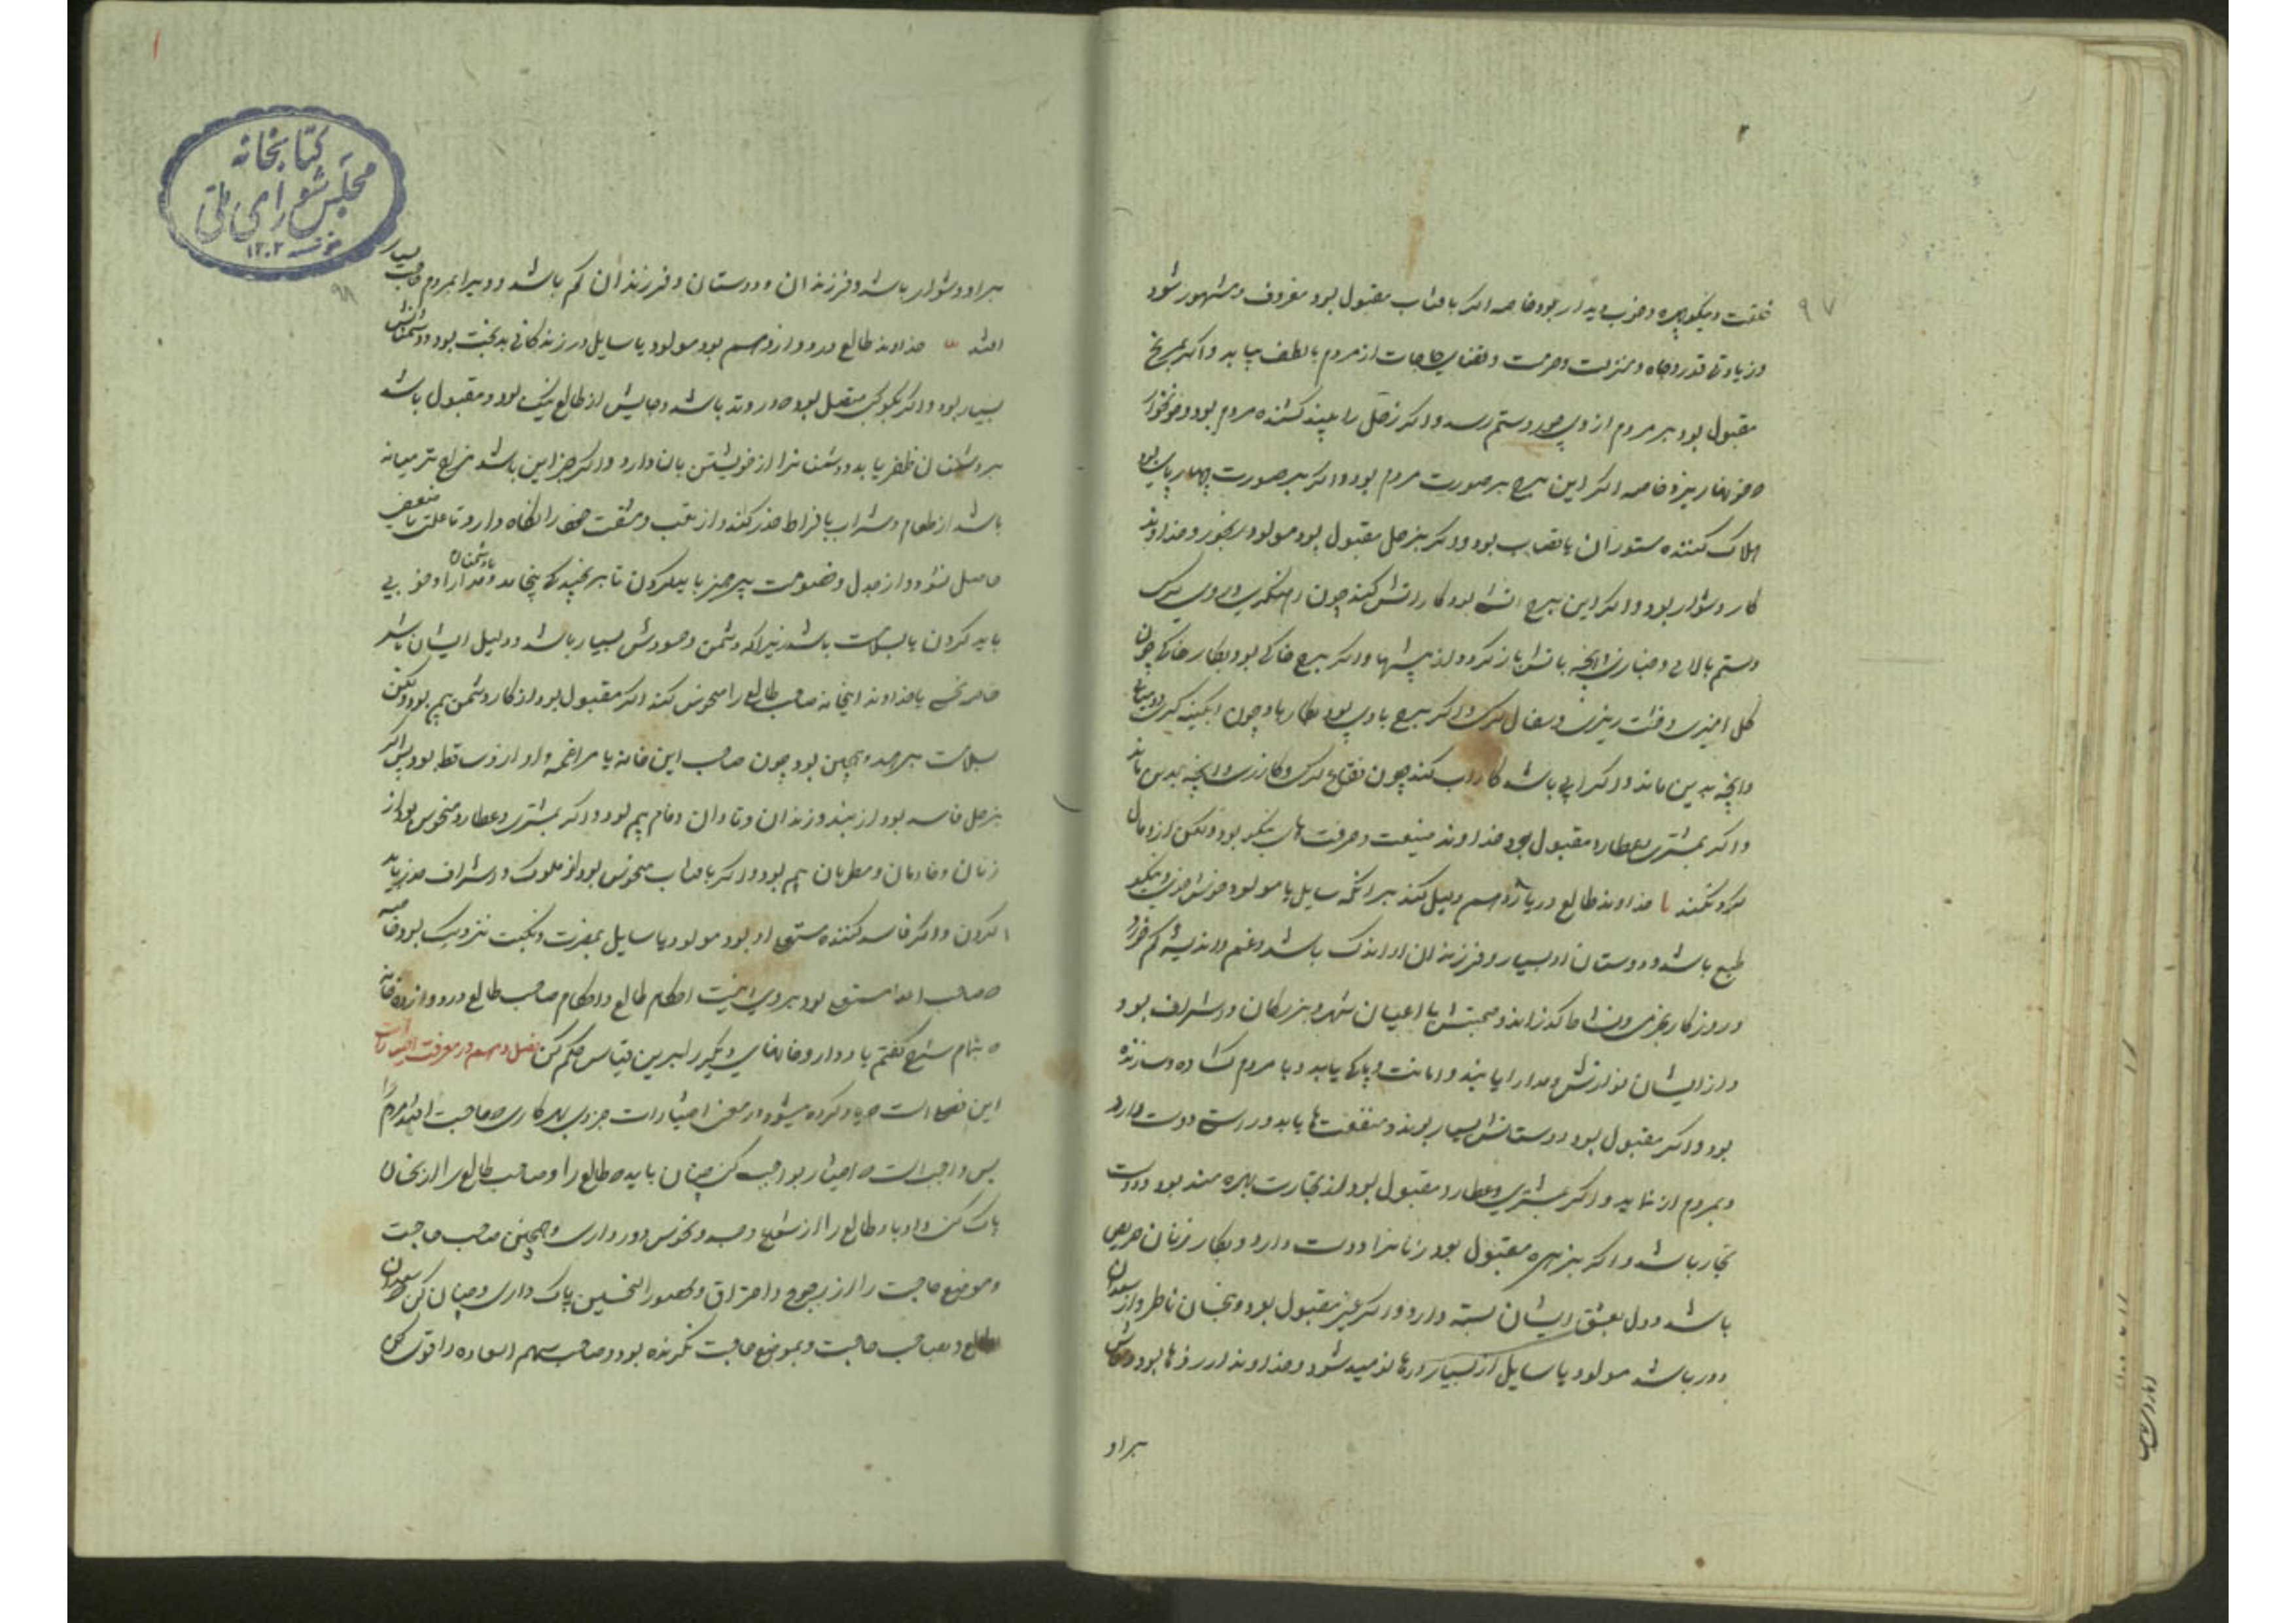 ۲
۹۷
خلقت و نیکو چهره و خوب دیدار بود خاصه اگر بافتاب مقبول بود معروف و مشهور شود
و زیادتی قدر و جاه و منزلت و حرمت و قضای حاجات از مردم با لطف بیابد و اگر بمریخ
مقبول بود بر مردم از وی جور و ستم رسد و اگر زحل را بیند کشنده مردم بود و خونخوار
و خونها ریزد خاصه اگر این برج بر صورت مردم بود و اگر بر صورت چهار پای بود
هلاک کننده ستوران یا قصاب بود و اگر بزحل مقبول بود مولود رنجور و خداوند
کار دشوار بود و اگر این برج اتشی بود کار اتش کند چون اهنگری و روی گری
و ستم بالایی و خبازی و انچه باتش باز گردد از پیشها و اگر برج خاکی بود بکار خاکی چون
گل اخیزی و خشت ریزی و سفال گری و اگر برج بادی بود بکارها چون ابگینه گری
و انچه بدین ماند و اگر ابی باشد کار اب کند چون فقاع گری و گازری و انچه بدین ماند
و اگر بمشتری و عطارد مقبول بود خداوند صنعت و حرفت های نیکو بود ولیکن ازو مال
گرد نکند یا خداوند طالع در یازدهم دلیل کند بر انکه سایل یا مولود خوش خوی و نیکو
طبع باشد و دوستان او بسیار و فرزندان او اندک باشد و غم و اندیشه کم خورد
و روزگار بخرمی و نشاط گذراند و صحبتش با اعیان شهر و بزرگان و اشراف بود
و از ایشان نوازش و مدارا یابند و امانت و پاکی یابد و با مردم گشاده و سازنده
بود و اگر مقبول بود دوستانش بسیار بوند و منفعت ها یابد و راستی دوست دارد
و بمردم از نماید و اگر بمشتری و عطارد مقبول بود از تجارت بهره مند بود و دوست
تجار باشد و اگر بزهره مقبول بود زنانرا دوست دارد و بکار زنان حریص
باشد و دل بعشق ایشان بسته دارد و اگر غیر مقبول بود و نحسان ناظر و از سعدان
دور باشد مولود یا سایل از بسیار ارزوها نومید شود و خداوند ارزوها بود و
براو
۱
کتابخانه
مجلس شورای ملی
۱۳۰۲
۹۸
براو دشوار باشد و فرزندان و دوستان و فرزندان کم باشد و ویرا بمردم حاجت بسیار
افتد خداوند طالع در دوازدهم بود مولود یا سایل در زندگانی بدبخت بود و دشمنانش
بسیار بود و اگر بکوکبی متصل بود در وتد باشد و جایش از طالع نیک بود و مقبول باشد
بر دشمنان ظفر یابد و دشمنانرا از خویشتن باز دارد و اگر جز این باشد مزاج تر میانه
باشد از طعام و شراب بافراط حذر کند و از تعب و مشقت خود را نگاه دارد تا علت یا ضعفی
حاصل نشود و از جدل و خصومت پرهیز باید کردن تا برنجیدگی نینجامد و با دشمنان مدارا و خوبی
باید کردن با سلامت باشد زیرا که دشمن و حسودش بسیار باشد و دلیل ایشان باشد
خاصه نحسی یا خداوند اینخانه صاحب طالع را منحوس کند اگر مقبول بود از کار دشمن بیم بود ولیکن
بسلامت برهد و همچنین بود چون صاحب این خانه یا مراغمه و او ازو ساقط بود پس اگر
بزحل فاسد بود از بند و زندان و تاوان و وام بیم بود و اگر بمشتری و عطارد منحوس بود از
زنان و خادمان و مطربان بیم بود و اگر بافتاب منحوس بود از ملوک و اشراف حذر باید
کردن و اگر فاسد کننده مستولی او بود مولود یا سایل بمضرت و نکبت نزدیک بود خاصه
صاحب ابدا مستولی بود بر وی اینست احکام طالع و احکام صاحب طالع در دوازده خانه
بتمام شرح گفتم یا ددار و خانهای دیگر را برین قیاس حکم کن فصل دهم در معرفت اختیارات
این فصل است که یاد کرده میشود در معنی اختیارات جزوی بهر کاری و حاجت افتد مردم را
پس واجبست که اختیار بواجب کنی چنان باید که طالع را و صاحب طالع را از نحسان
پاک کنی و اوتاد طالع را از شعاع و جسد و نحوس دور داری و همچنین صاحب حاجت
و موضع حاجت را از رجوع و احتراق و حصور النحسین پاک داری و چنان کن که سعدان
بطالع و بصاحب حاجت و بموضع حاجت نگرنده بود و صاحب سهم السعاده را قوی کن